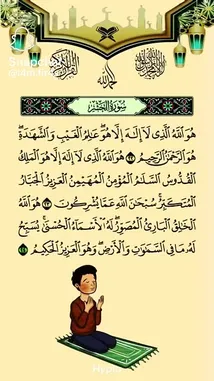 Snapchat
سورة الحشر
هُوَ اللَّهُ الَّذِي لَا إِلَٰهَ إِلَّا هُوَ عَالِمُ الْغَيْبِ وَالشَّهَادَةِ
هُوَ الرَّحْمَٰنُ الرَّحِيمُ ۝٢٢ هُوَ اللَّهُ الَّذِي لَا إِلَٰهَ إِلَّا هُوَ الْمَلِكُ
الْقُدُّوسُ السَّلَامُ الْمُؤْمِنُ الْمُهَيْمِنُ الْعَزِيزُ الْجَبَّارُ
الْمُتَكَبِّرُ سُبْحَانَ اللَّهِ عَمَّا يُشْرِكُونَ ۝٢٣ هُوَ اللَّهُ
الْخَالِقُ الْبَارِئُ الْمُصَوِّرُ لَهُ الْأَسْمَاءُ الْحُسْنَىٰ يُسَبِّحُ
لَهُ مَا فِي السَّمَاوَاتِ وَالْأَرْضِ وَهُوَ الْعَزِيزُ الْحَكِيمُ ۝٢٤